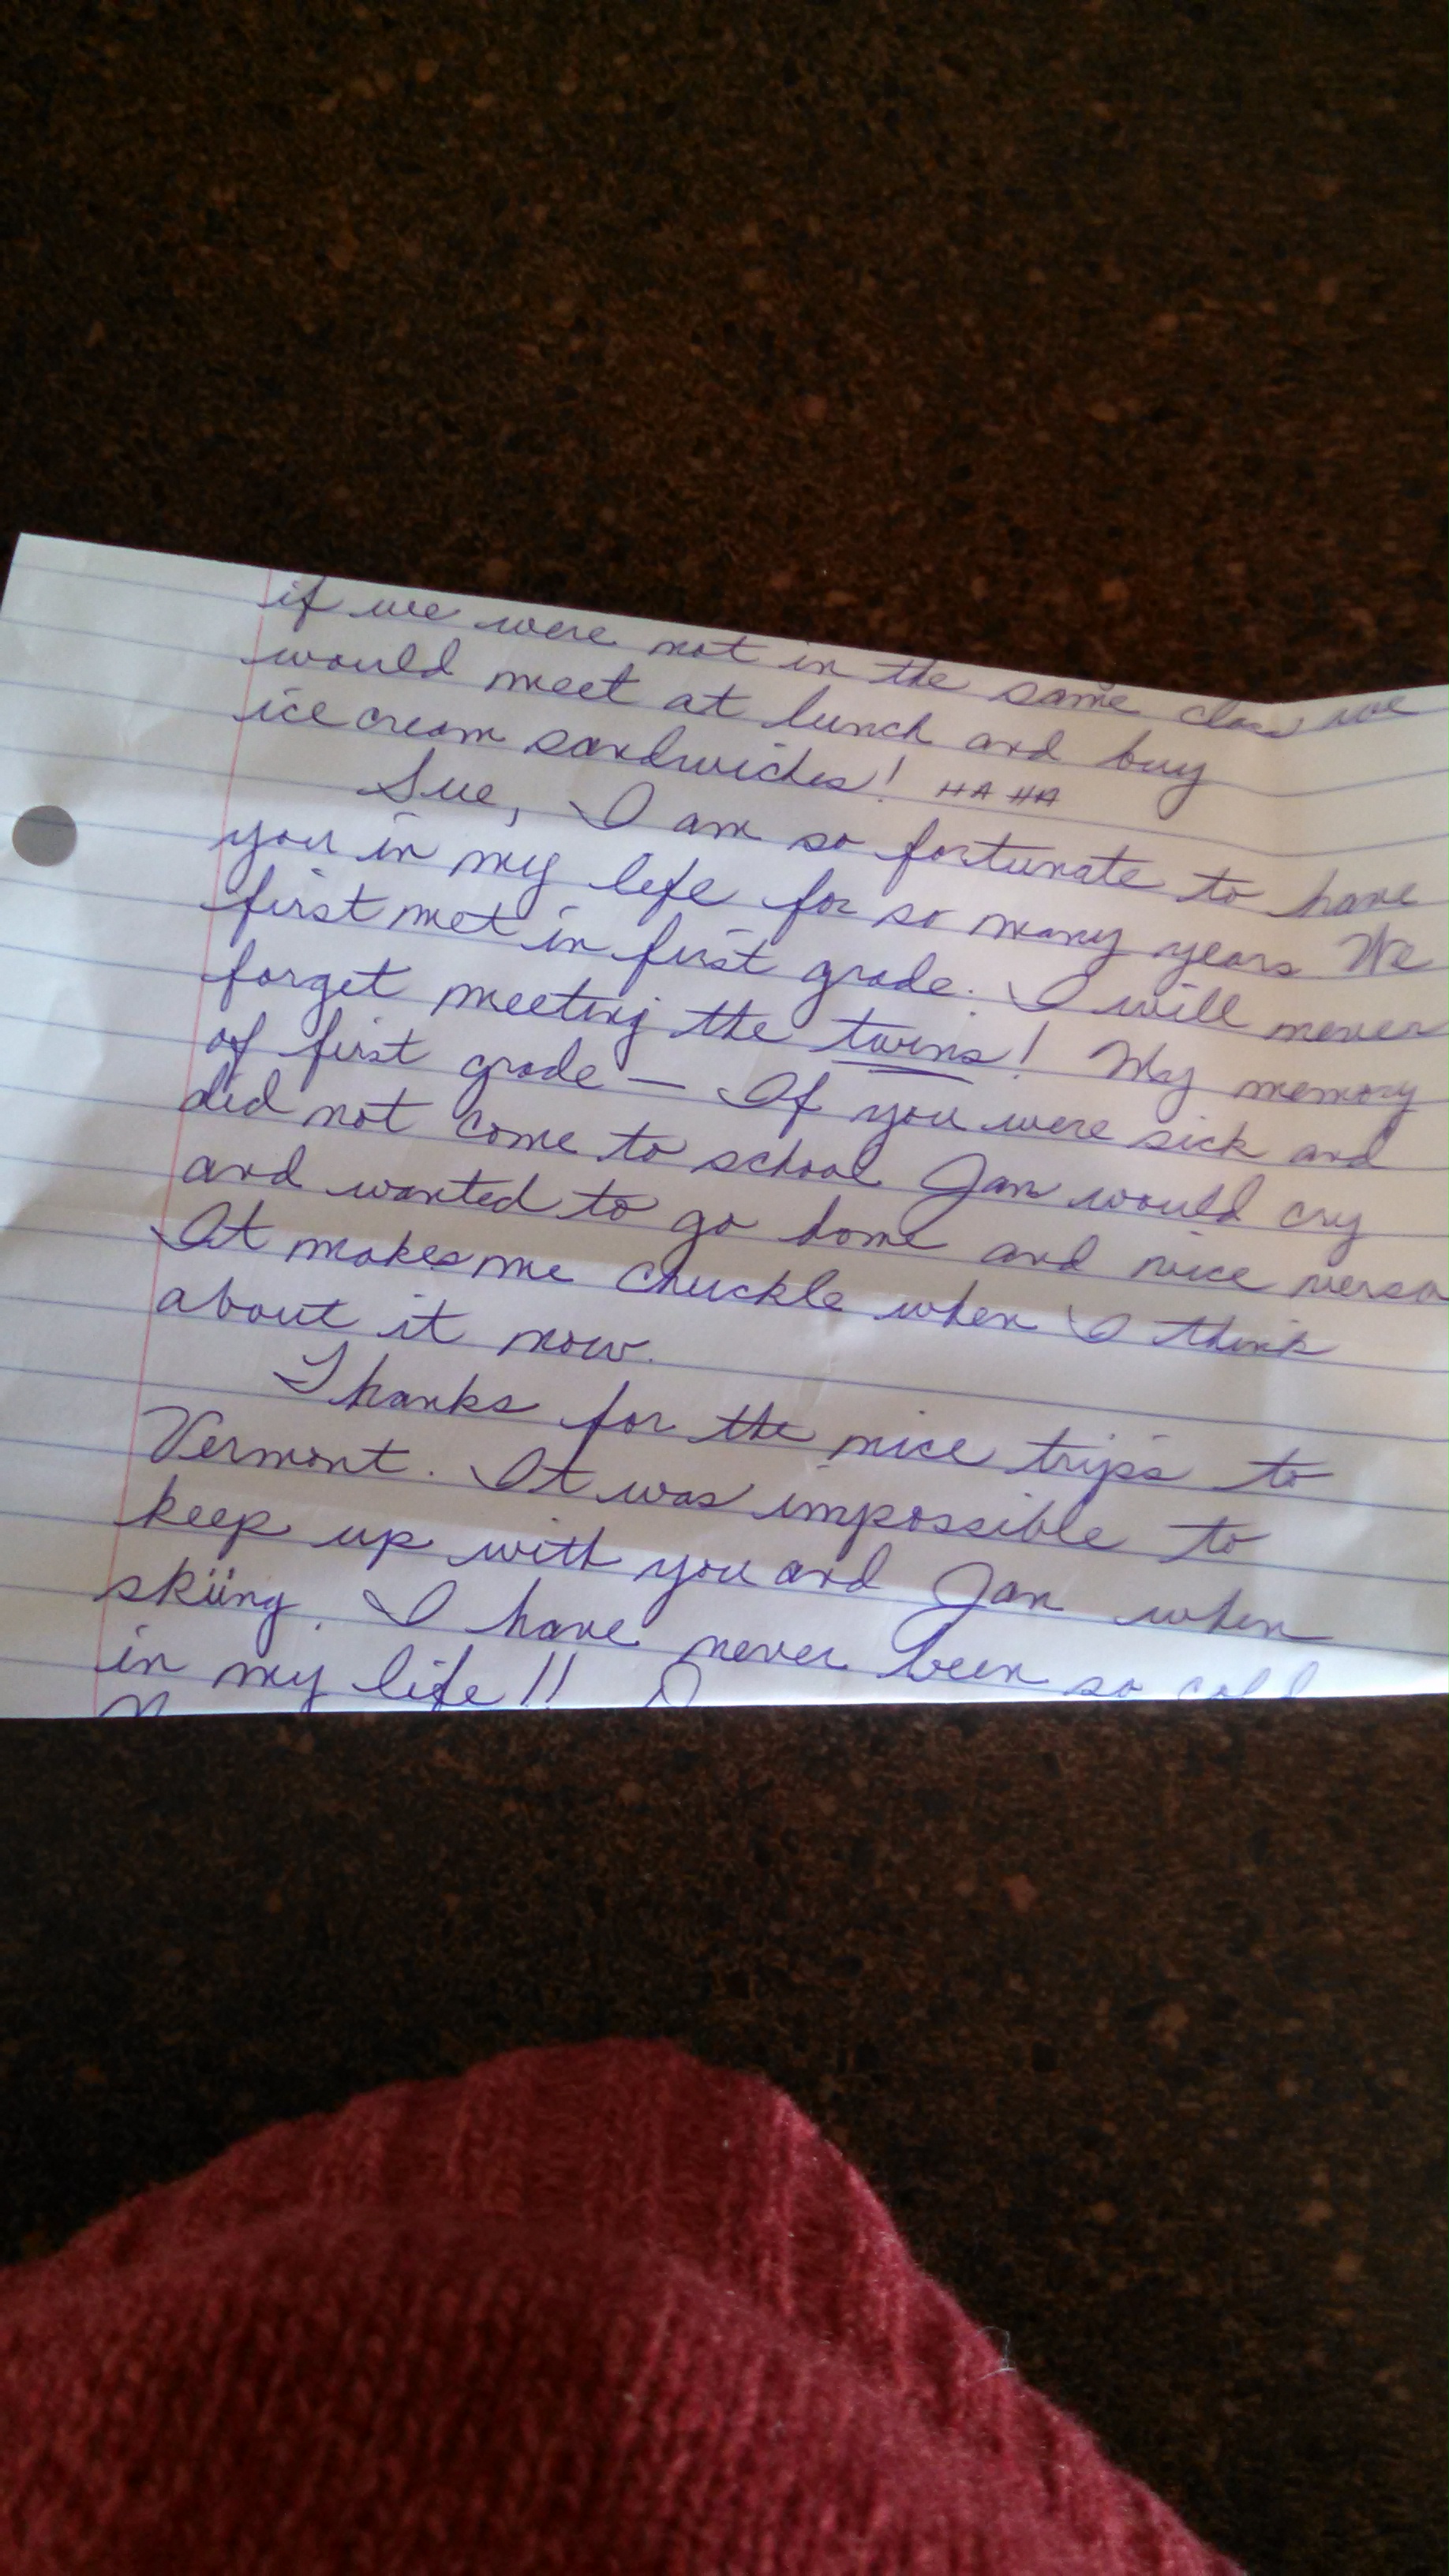 if we were not in the same class we
would meet at lunch and buy
ice cream sandwiches! HA HA
Sue, I am so fortunate to have
you in my life for so many years We
first met in first grade. I will never
forget meeting the twins! My memory
of first grade — If you were sick and
did not come to school Jan would cry
and wanted to go home and vice versa
It makes me chuckle when I think
about it now.
Thanks for the nice trips to
Vermont. It was impossible to
keep up with you and Jan when
skiing. I have never been so cold
in my life!!